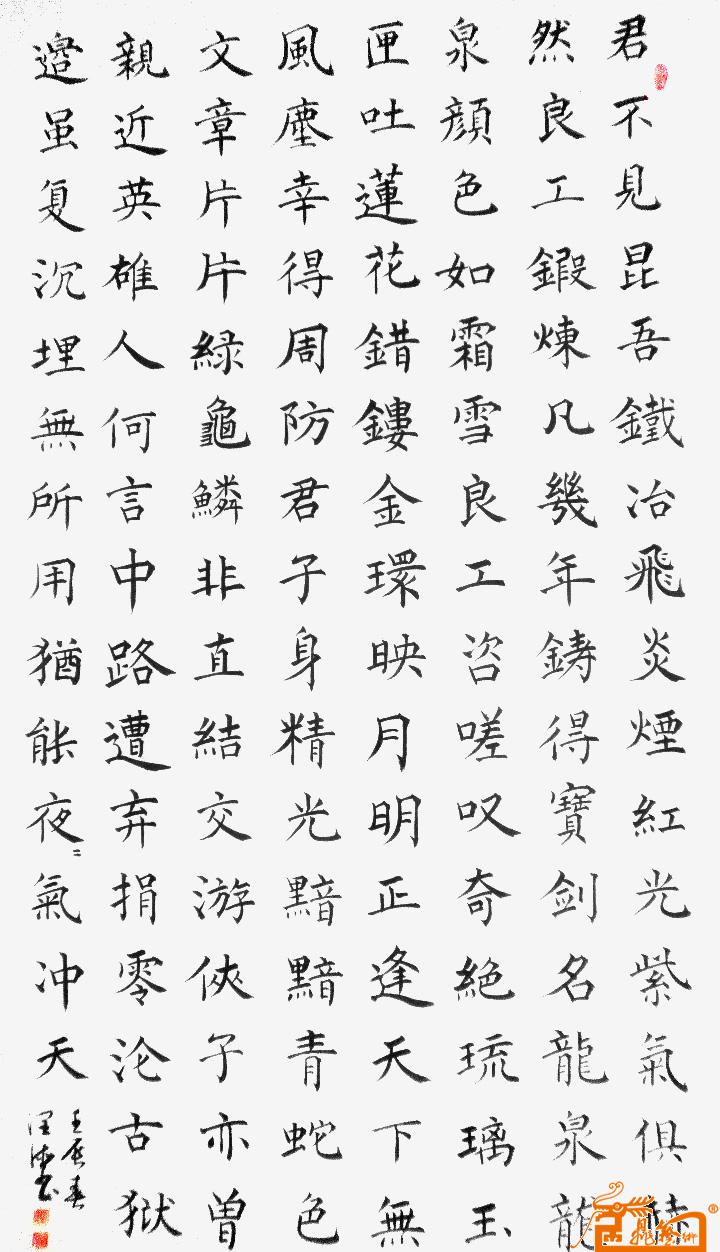 君不見昆吾鐵冶飛炎煙紅光紫氣俱赫
然良工鍜煉凡幾年鑄得寶剑名龍泉龍
泉顔色如霜雪良工咨嗟叹奇絕琉璃玉
匣吐蓮花錯鏤金環映月明正逢天下無
風塵幸得周防君子身精光黯黯青蛇色
文章片片緑龜鱗非直結交游俠子亦曾
親近英雄人何言中路遭弃捐零沦古狱
邊虽复沉埋無所用猶能夜〻氣冲天
壬辰春